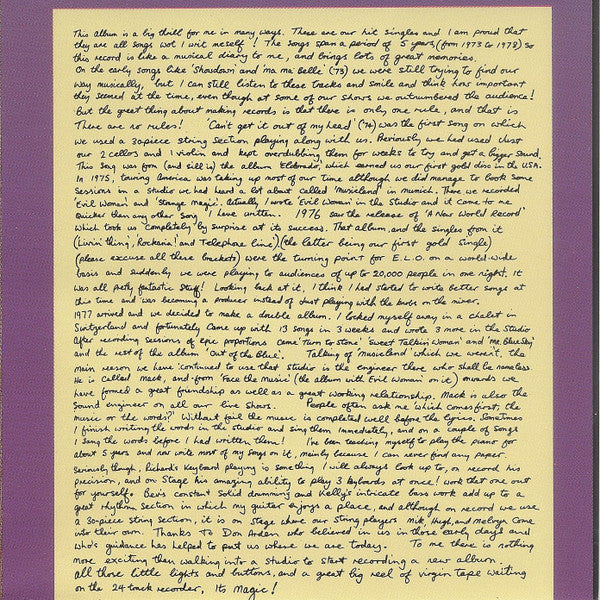 This album is a big thrill for me in many ways. These are our hit singles and I am proud that
they are all songs wot I writ meself! The songs span a period of 5 years, (from 1973 to 1978) so
this record is like a musical diary to me, and brings lots of great memories.
On the early songs like 'Showdown' and 'Ma Ma Belle' ('73) we were still trying to find our
way musically, but I can still listen to these tracks and smile and think how important
they seemed at the time, even though at some of our shows we outnumbered the audience!
But the great thing about making records is that there is only one rule, and that is
There are no rules! 'Can't get it out of my head' ('74) was the first song on which
we used a 30 piece string section playing along with us. Previously we had used just
our 2 cellos and 1 violin and kept overdubbing them for weeks to try and get a bigger sound.
This song was from (and still is) the album Eldorado, which earned us our first gold disc in the U.S.A.
In 1975, touring America was taking up most of our time although we did manage to book some
sessions in a studio we had heard a lot about called 'Musicland' in Munich. There we recorded
'Evil Woman' and 'Strange magic'. Actually I wrote 'Evil Woman' in the studio and it came to me
quicker than any other song I have written. 1976 saw the release of 'A New World Record'
which took us completely by surprise at its success. That album, and the singles from it
(Livin' thing', 'Rockaria! and Telephone Line') (the latter being our first gold single)
(please excuse all these brackets) were the turning point for E.L.O. on a world-wide
basis and suddenly we were playing to audiences of up to 20,000 people in one night. It
was all pretty fantastic stuff! Looking back at it, I think I had started to write better songs at
this time and was becoming a producer instead of just playing with the knobs on the mixer.
1977 arrived and we decided to make a double album. I locked myself away in a chalet in
Switzerland and fortunately came up with 13 songs in 3 weeks and wrote 3 more in the studio
After recording sessions of epic proportions came 'Turn to Stone' 'Sweet Talkin' Woman' and 'Mr. Blue Sky'
and the rest of the album 'Out of the Blue'. Talking of 'Musicland' which we weren't, the
main reason we have continued to use that studio is the engineer there who shall be nameless
He is called Mack, and from 'Face the Music' (the album with Evil Woman on it) onwards we
have formed a great friendship as well as a great working relationship. Mack is also the
sound engineer on all our live shows. People often ask me 'which comes first, the
music or the words?' Without fail the music is completed well before the lyrics. Sometimes
I finish writing the words in the studio and sing them immediately, and on a couple of songs
I sang the words before I had written them! I've been teaching myself to play the piano for
about 5 years and now write most of my songs on it, mainly because I can never find any paper.
Seriously though, Richard's keyboard playing is something I will always look up to, on record his
precision, and on stage his amazing ability to play 3 keyboards at once! work that one out
for yourself. Bev's constant solid drumming and Kelly's intricate bass work add up to a
great rhythm section in which my guitar enjoys a place, and although on record we use
a 30-piece string section, it is on stage where our string players Mik, Hugh, and Melvyn come
into their own. Thanks To Don Arden who believed in us in those early days and
who's guidance has helped to put us where we are today. To me there is nothing
more exciting then walking into a studio to start recording a new album.
all those little lights and buttons, and a great big reel of virgin tape waiting
on the 24 track recorder, Its Magic!